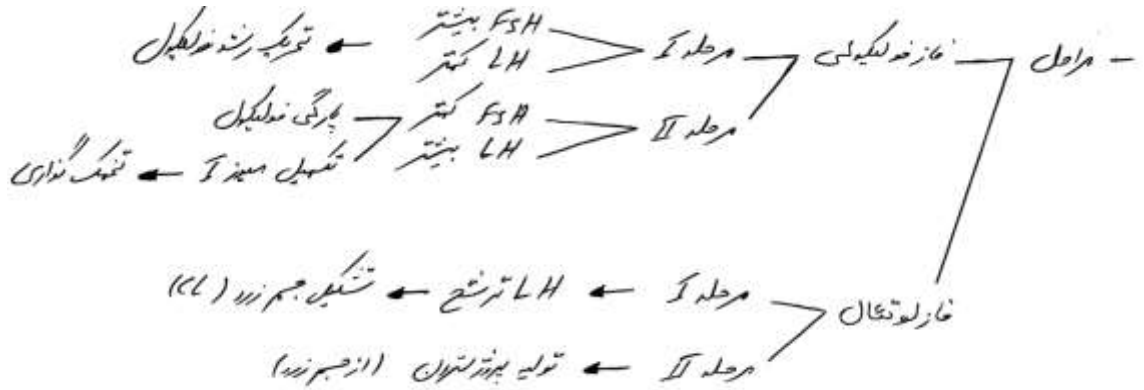 – مراحل
فاز فولیکولی
مرحله I
FSH بیشتر
LH کمتر
← تحریک رشد فولیکول
مرحله II
FSH کمتر
LH بیشتر
پارگی فولیکول
تکمیل میوز I ← تخمک گذاری
فاز لوتئال
مرحله I ← LH ترشح ← تشکیل جسم زرد (CL)
مرحله II ← تولید پروژسترون (از جسم زرد)